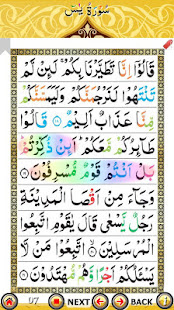 سُورَةُ يٰسٓ
قَالُوْٓا اِنَّا تَطَيَّرْنَا بِكُمْ ۚ لَئِنْ لَّمْ
تَنْتَهُوْا لَنَرْجُمَنَّكُمْ وَلَيَمَسَّنَّكُمْ
مِّنَّا عَذَابٌ اَلِيْمٌ ۝ قَالُوْا
طَآئِرُكُمْ مَّعَكُمْ ۚ اَئِنْ ذُكِّرْتُمْ ۚ
بَلْ اَنْتُمْ قَوْمٌ مُّسْرِفُوْنَ ۝
وَجَآءَ مِنْ اَقْصَا الْمَدِيْنَةِ
رَجُلٌ يَّسْعٰى قَالَ يٰقَوْمِ اتَّبِعُوا
الْمُرْسَلِيْنَ ۝ اتَّبِعُوْا مَنْ لَّا
يَسْـَٔلُكُمْ اَجْرًا وَّهُمْ مُّهْتَدُوْنَ ۝
97 NEXT BACK